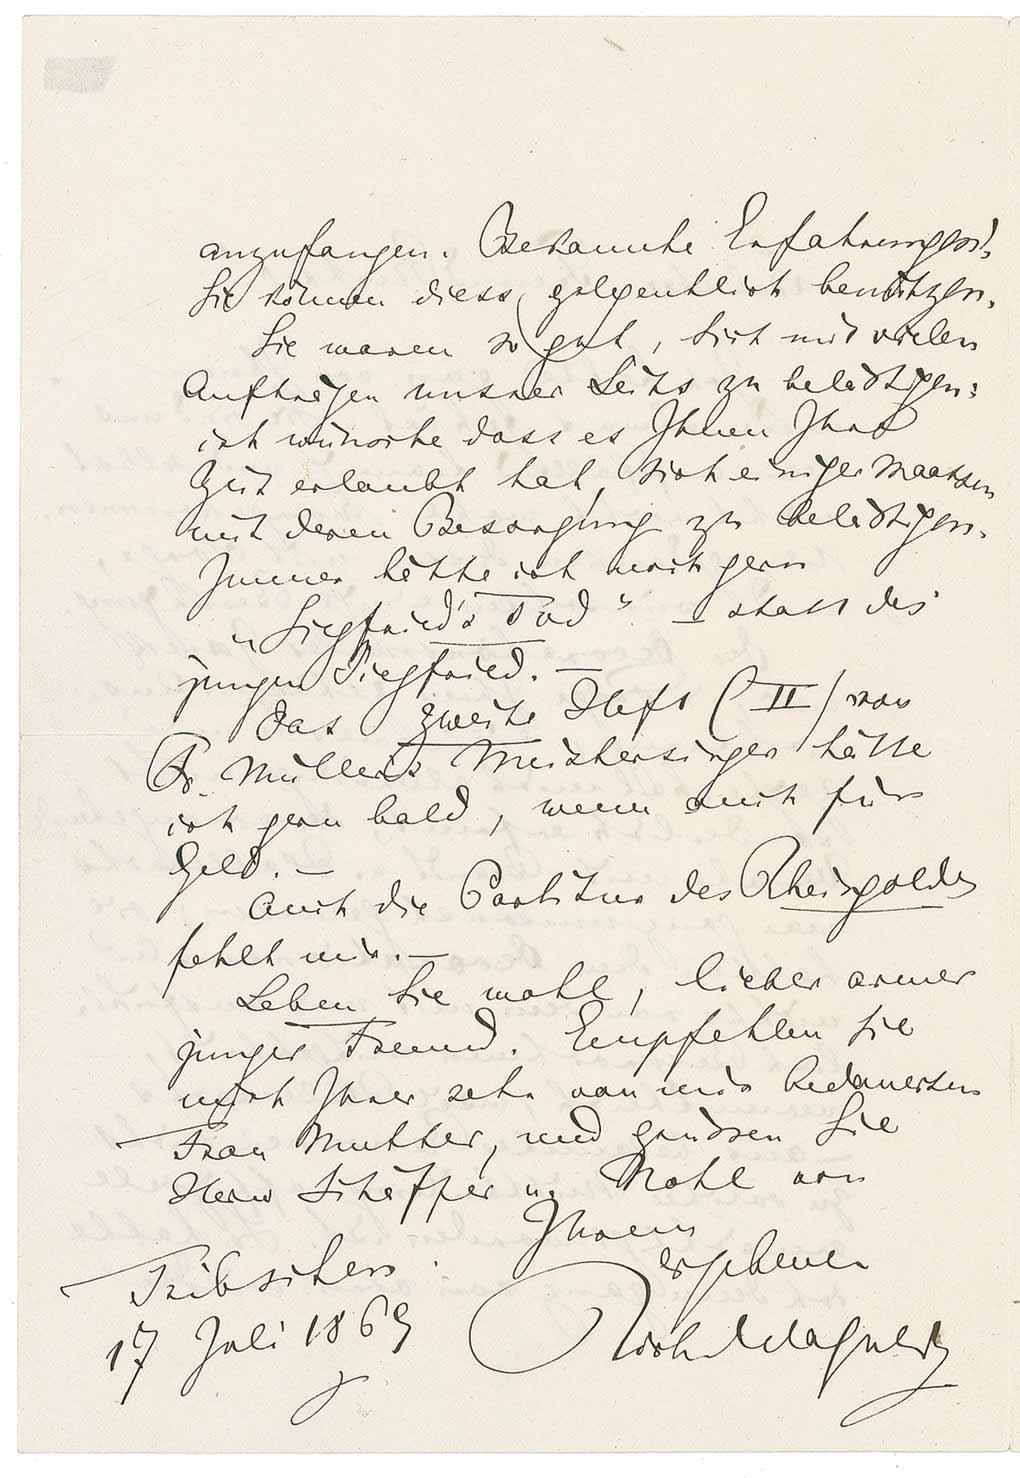 anzufangen. Bekannte Erfahrungen!
Sie können diess gelegentlich benützen.
Sie waren so gut, Sich mit vielen
Aufträgen unsrer Seits zu belästigen:
ich wünsche dass es Ihnen Ihre
Zeit erlaubt hat, Sich einiger Maassen
mit deren Besorgung zu belästigen.
Immer hätte ich noch gern
„Siegfried's Tod" – statt des
jungen Siegfried. —
Das zweite Heft (II) von
Fr. Müller's Meistersinger hätte
ich gern bald, wenn auch für
Geld. —
Auch die Partitur des Rheingoldes
fehlt mir. —
Leben Sie wohl, lieber armer
junger Freund. Empfehlen Sie
mich Ihrer sehr von mir bedauerten
Frau Mutter, und grüssen Sie
Herrn Schäffer u. Nohl von
Ihrem
ergebenen
Tribschen.
17 Juli 1869
Rich. Wagner